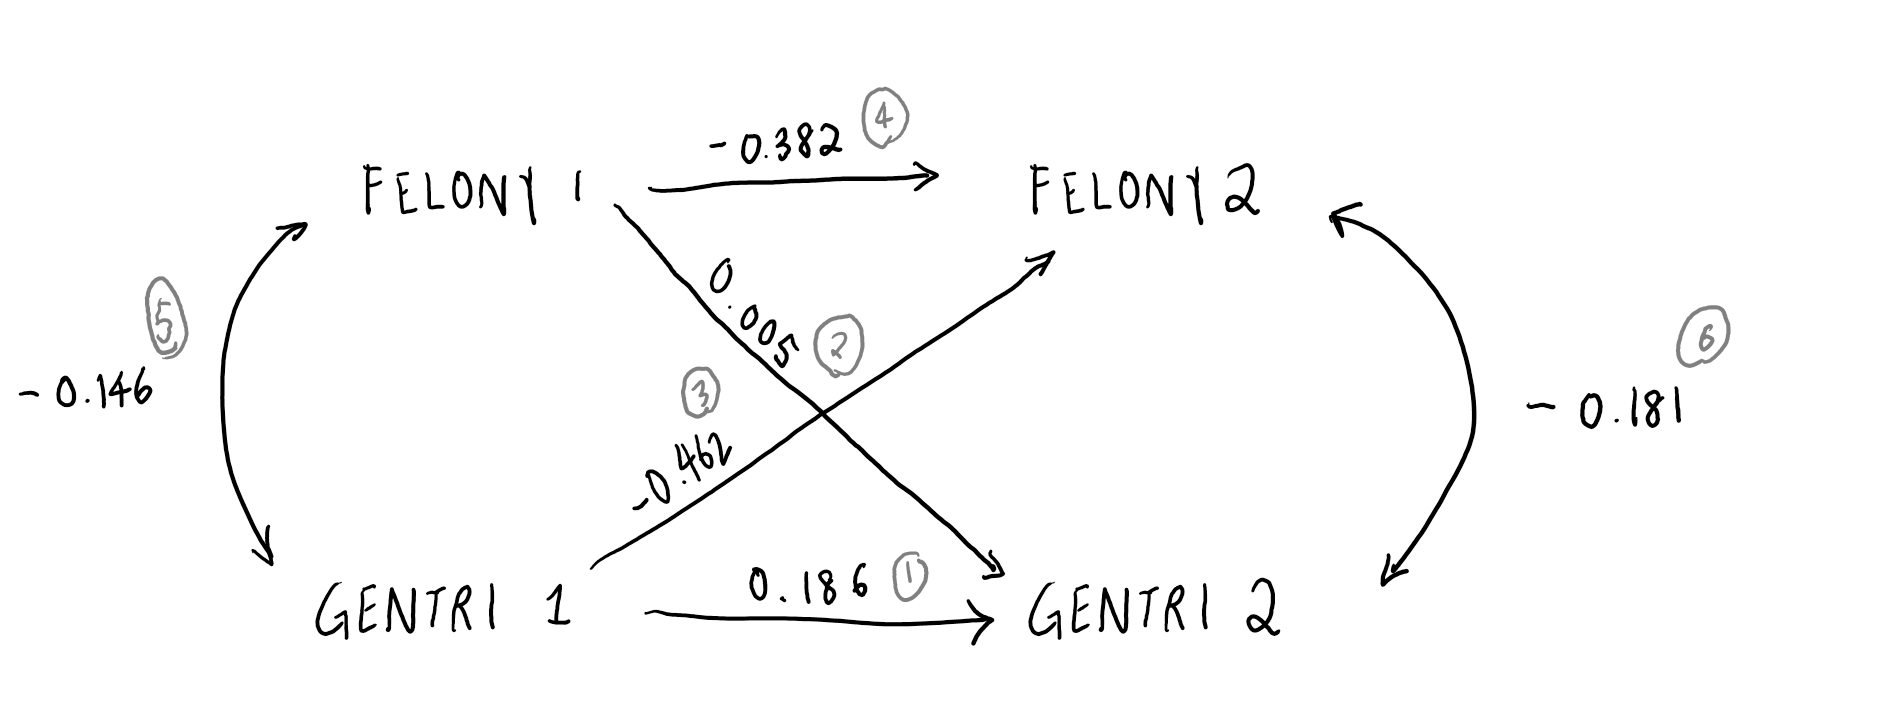 - 0.382 4
FELONY 1 FELONY 2
0.005 2
5
- 0.146
3
-0.462
6
- 0.181
0.186 1
GENTRI 1 GENTRI 2